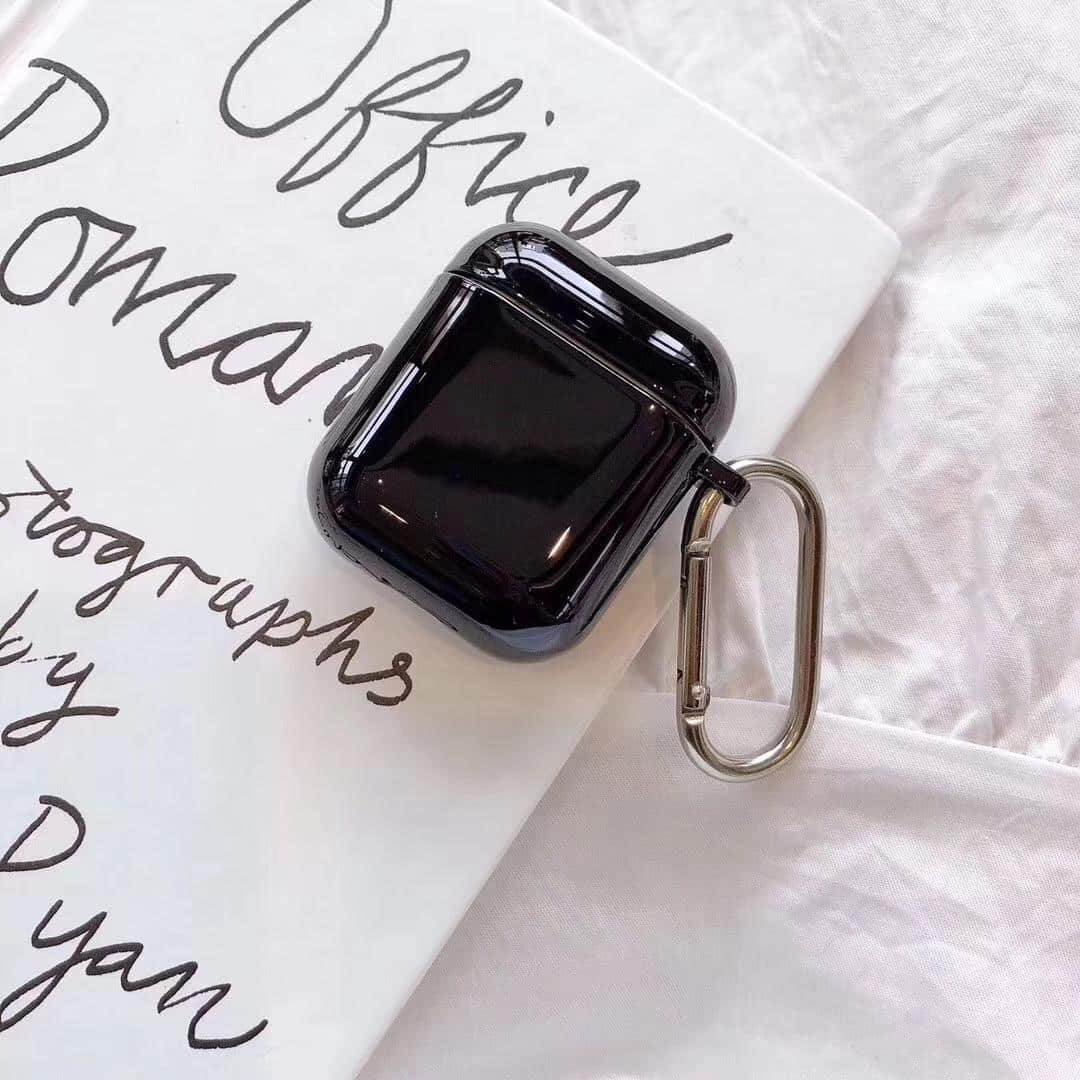 Office
D
oman
otographs
by
D
yan